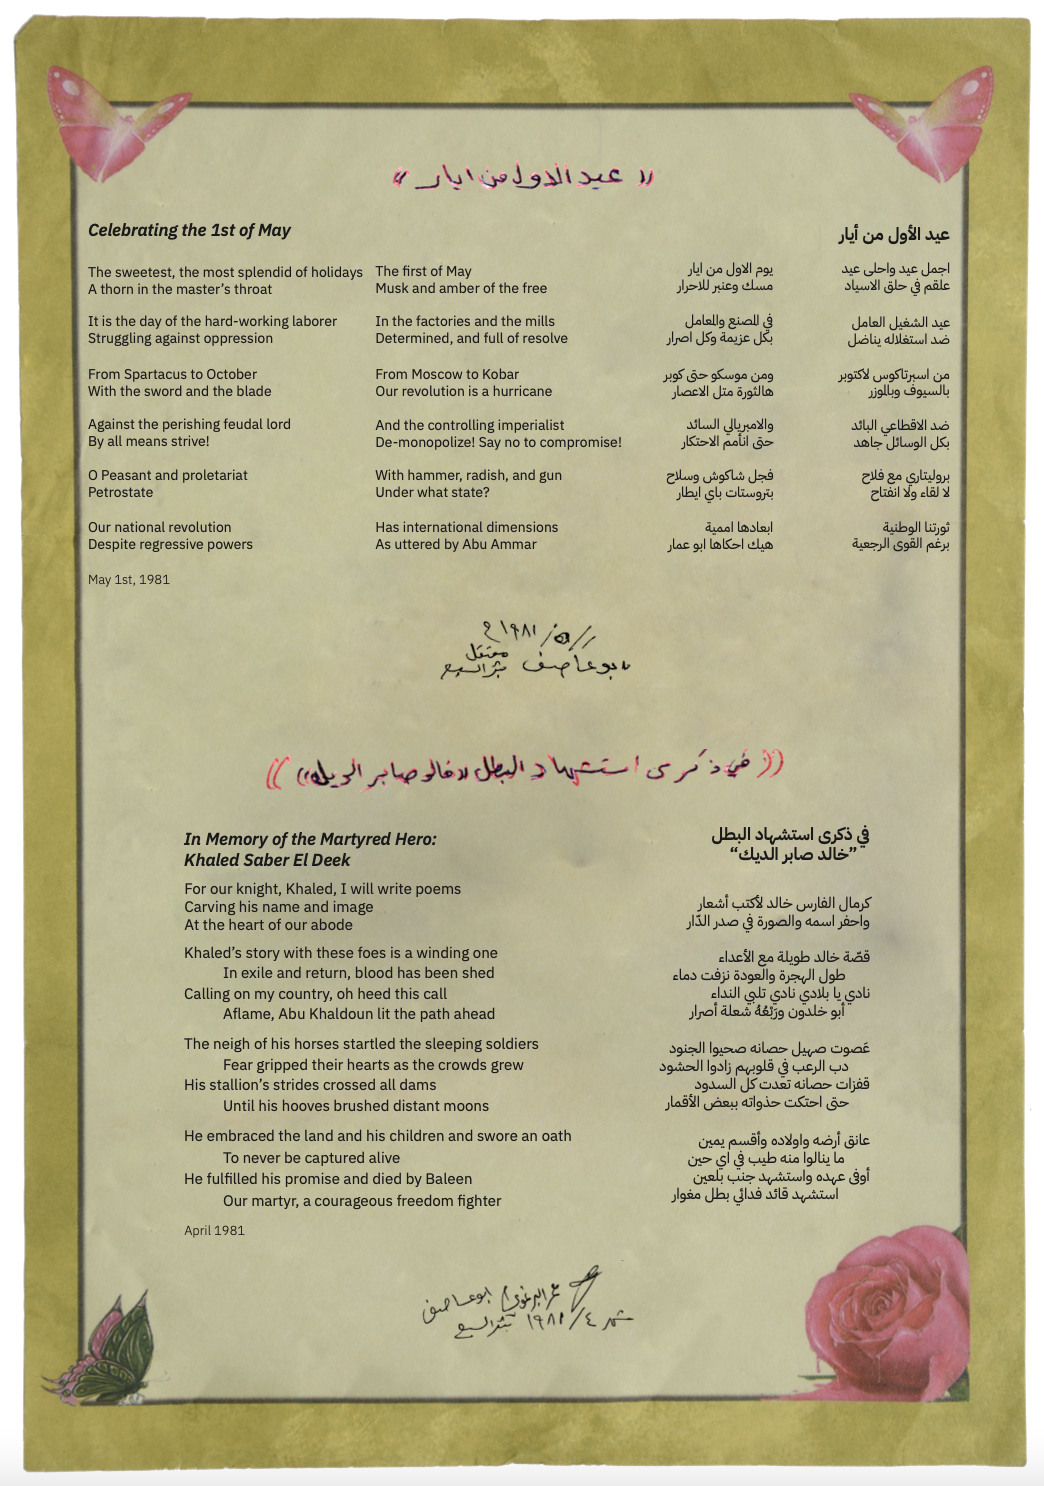 « عيد الاول من ايار »
Celebrating the 1st of May
عيد الأول من أيار
The sweetest, the most splendid of holidays
A thorn in the master’s throat
It is the day of the hard-working laborer
Struggling against oppression
From Spartacus to October
With the sword and the blade
Against the perishing feudal lord
By all means strive!
O Peasant and proletariat
Petrostate
Our national revolution
Despite regressive powers
May 1st, 1981
The first of May
Musk and amber of the free
In the factories and the mills
Determined, and full of resolve
From Moscow to Kobar
Our revolution is a hurricane
And the controlling imperialist
De-monopolize! Say no to compromise!
With hammer, radish, and gun
Under what state?
Has international dimensions
As uttered by Abu Ammar
اجمل عيد واحلى عيد
علقم في حلق الاسياد
عيد الشغيل العامل
ضد استغلاله يناضل
من اسبرتاكوس لاكتوبر
بالسيوف وبالموزر
ضد الاقطاعي البائد
بكل الوسائل جاهد
بروليتاري مع فلاح
لا لقاء ولا انفتاح
ثورتنا الوطنية
برغم القوى الرجعية
يوم الاول من ايار
مسك وعنبر للاحرار
في المصنع والمعامل
بكل عزيمة وكل اصرار
ومن موسكو حتى كوبر
هالثورة متل الاعصار
والامبريالي السائد
حتى انأمم الاحتكار
فجل شاكوش وسلاح
بتروستات باي ايطار
ابعادها اممية
هيك احكاها ابو عمار
١٩٨١ م
ابو عاصف معتقل
بئر السبع
(( في ذكرى استشهاد البطل «خالد صابر الديك» ))
In Memory of the Martyred Hero:
Khaled Saber El Deek
في ذكرى استشهاد البطل
”خالد صابر الديك“
For our knight, Khaled, I will write poems
Carving his name and image
At the heart of our abode
Khaled’s story with these foes is a winding one
In exile and return, blood has been shed
Calling on my country, oh heed this call
Aflame, Abu Khaldoun lit the path ahead
The neigh of his horses startled the sleeping soldiers
Fear gripped their hearts as the crowds grew
His stallion’s strides crossed all dams
Until his hooves brushed distant moons
He embraced the land and his children and swore an oath
To never be captured alive
He fulfilled his promise and died by Baleen
Our martyr, a courageous freedom fighter
April 1981
كرمال الفارس خالد لأكتب أشعار
واحفر اسمه والصورة في صدر الدّار
قصّة خالد طويلة مع الأعداء
طول الهجرة والعودة نزفت دماء
نادي يا بلادي نادي تلبي النداء
أبو خلدون ورَبْعُهُ شعلة أصرار
عَصوت صهيل حصانه صحيوا الجنود
دب الرعب في قلوبهم زادوا الحشود
قفزات حصانه تعدت كل السدود
حتى احتكت حذواته ببعض الأقمار
عانق أرضه واولاده وأقسم يمين
ما ينالوا منه طيب في اي حين
أوفى عهده واستشهد جنب بلعين
استشهد قائد فدائي بطل مغوار
عمر البرغوثي ابو عاصف
٤/ ١٩٨١ بئر السبع